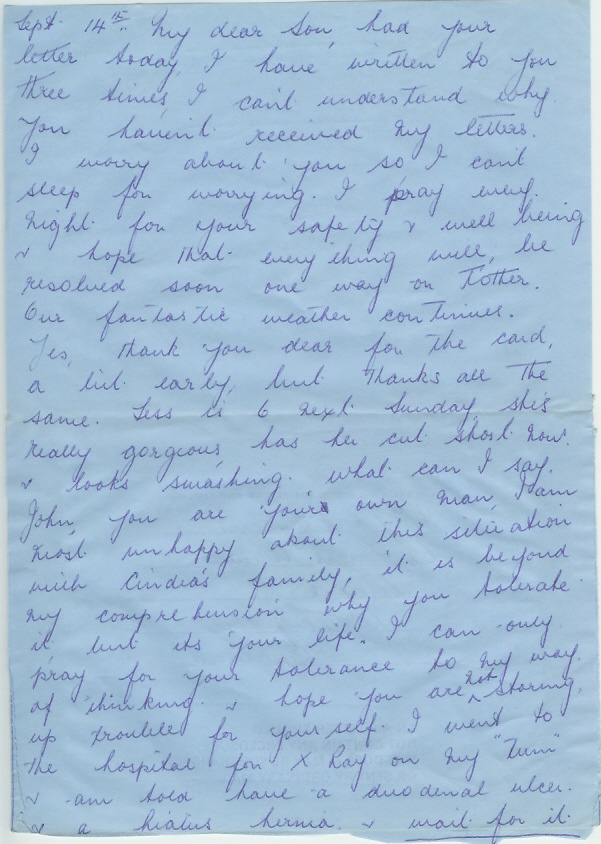 Sept 14th. My dear Son, had your
letter today, I have written to you
three times, I can't understand why
you haven't received my letters.
I worry about you so I can't
sleep for worrying. I pray every
night for your safety & well being
& hope that everything will, be
resolved soon one way or t'other.
Our fantastic weather continues.
Yes, thank you dear for the card,
a bit early, but thanks all the
same. Tess is 6 next Sunday, she's
really gorgeous has her cut short now.
& looks smashing. what can I say.
John, you are your own man, I am
most unhappy about this situation
with Cindia's family, it is beyond
my comprehension why you tolerate
it but its your life. I can only
pray for your tolerance to my way
of thinking. & hope you are not storing,
up trouble for yourself. I went to
the hospital for X Ray on my "Tum"
& am told have a duodenal ulcer.
& a hiatus hernia. & wait for it